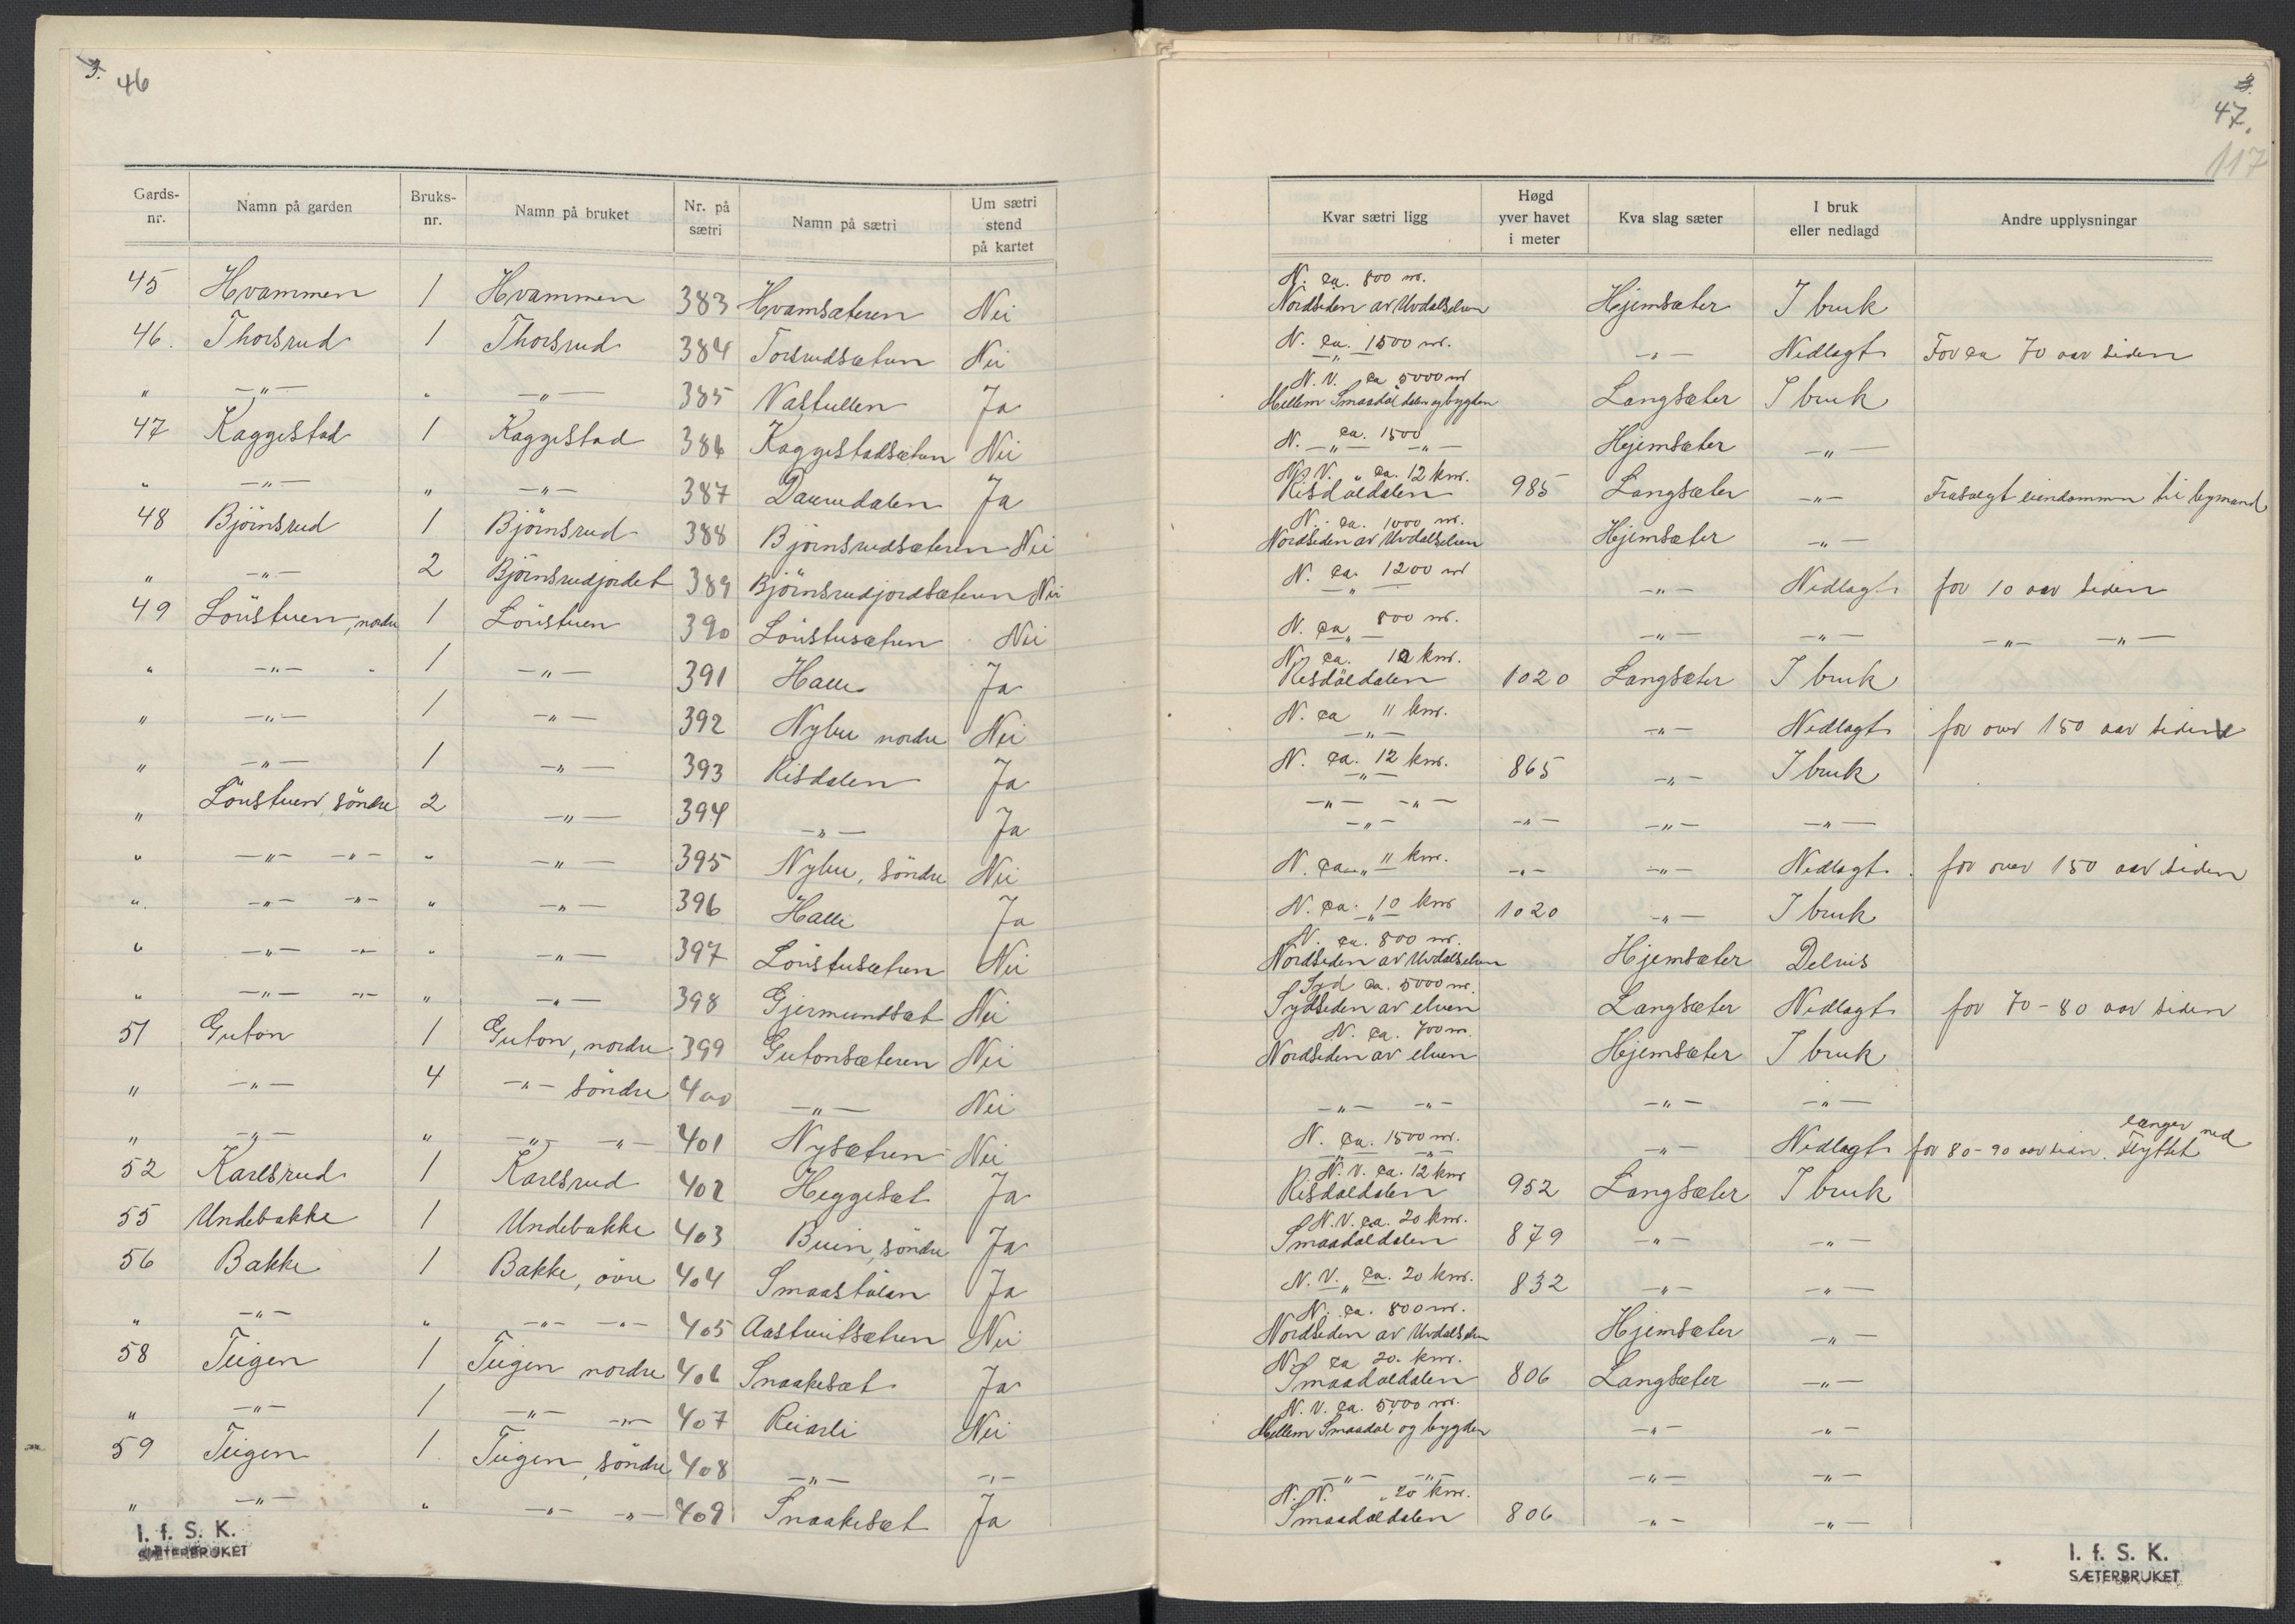 3. 46
Gards-nr. Namn på garden Bruks-nr. Namn på bruket Nr. på sætri Namn på sætri Um sætri stend på kartet
45 Hvammen 1 Hvammen 383 Hvamsæteren Nei
46. Thorsrud 1 Thorsrud 384 Torsrudsætern Nei
" —"— " —"— 385 Vastullen Ja
47 Kaggestad 1 Kaggestad 386 Kaggestadsætern Nei
" —"— " —"— 387 Daurudalen Ja
48 Björnsrud 1 Björnsrud 388 Björnsrudsæteren Nei
" —"— 2 Björnsrudjordet 389 Björnsrudjordsætern Nei
49 Löustuen, nordre 1 Löustuen 390 Löustusætern Nei
" —"— " 1 —"— 391 Halle Ja
" —"— 1 —"— 392 Nybu nordre Nei
" —"— 1 —"— 393 Risdalen Ja
" Löustuen, söndre 2 —"— 394 —"— Ja
" —"— —"— " —"— 395 Nybu, söndre Nei
" —"— —"— " —"— 396 Halle Ja
" —"— —"— " —"— 397 Löustusætern Nei
" —"— —"— " —"— 398 Gjermundsæt Nei
51 Guton 1 Guton, nordre 399 Gutonsæteren Nei
" —"— 4 —"— söndre 400 —"— Nei
" —"— " —"— —"— 401 Nysætern Nei
52 Karlsrud 1 Karlsrud 402 Heggesæt Ja
55 Undebakke 1 Undebakke 403 Buin, söndre Ja
56 Bakke 1 Bakke, övre 404 Smaastölen Ja
" —"— " —"— —"— 405 Aastveitsætern Nei
58 Teigen 1 Teigen nordre 406 Snaakesæt Ja
" —"— 1 —"— —"— 407 Reiarli Nei
59 Teigen 1. Teigen, söndre 408 —"— —"—
" —"— " —"— —"— 409 Snaakesæt Ja
I. f. S. K.
SÆTERBRUKET
3.
47.
117
Kvar sætri ligg Høgd yver havet i meter Kva slag sæter I bruk eller nedlagd Andre upplysningar
N. ca. 800 m.
Nordsiden av Uvdalselven Hjemsæter I bruk
N. ca. 1500 m.
—"— —"— Nedlagt For ca 70 aar siden
N. V. ca 5000 m
Mellem Smaadöldalen og bygden Langsæter I bruk
N. ca. 1500
—"— —"— Hjemsæter —"—
N. V. " ca. 12 km.
Risdöldalen 985 Langsæter —"— Frasolgt eiendommen til bymand
N. ca. 1000 m.
Nordsiden av Uvdalselven Hjemsæter —"—
N. ca. 1200 m
—"— —"— Nedlagt for 10 aar siden
N. ca. 800 m.
—"— —"— —"— —"— —"—
N. ca. 10 km.
Risdöldalen 1020 Langsæter I bruk
N. ca 11 km.
—"— —"— Nedlagt for over 150 aar siden
N. ca. 12 km.
—"— 865 —"— I bruk
—"— —"—
—"— —"— —"— —"—
N. ca. " 11 km. —"— —"— Nedlagt. for over 150 aar siden
N. ca. 10 km
—"— 1020 —"— I bruk
N. ca. 800 m.
Nordsiden av Uvdalselven Hjemsæter Delvis
Syd ca. 5000 m.
Sydsiden av elven Langsæter Nedlagt for 70-80 aar siden
N. ca. 700 m.
Nordsiden av elven Hjemsæter I bruk
—"— —"— —"— —"—
N. ca. 1500 m.
—"— —"— —"— Nedlagt for 80-90 aar sian. Flyttet længer ned
N. V. ca. 12 km
Risdoldalen 952 Langsæter I bruk
N. V. ca. 20 km.
Smaadoldalen 879 —"— —"—
N. V. " ca. 20 km. 832 —"— —"—
N. ca. 800 m.
Nordsiden av Uvdalselven Hjemsæter —"—
N. ca 20. km.
Smaadoldalen 806 Langsæter —"—
N. V. ca. 5000 m.
Mellem Smaadal og bygden —"— —"—
—"— —"— —"— —"—
N. V. " 20 km.
Smaadoldalen 806 —"— —"—
I. f. S. K.
SÆTERBRUKET